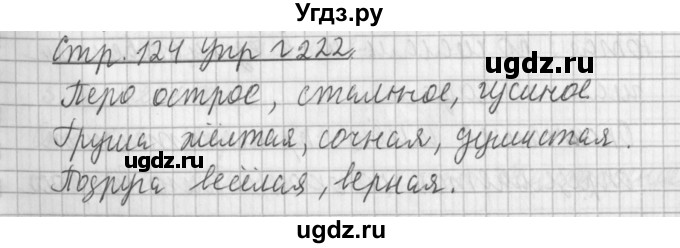 Угдз.ру
Стр. 124 упр г 222.
ugdz.ru ugdz.ru
Перо острое, стальное, гусиное
ugdz.ru
Груша жёлтая, сочная, душистая.
ugdz.ru
Подруга весёлая, верная.
ugdz.ru